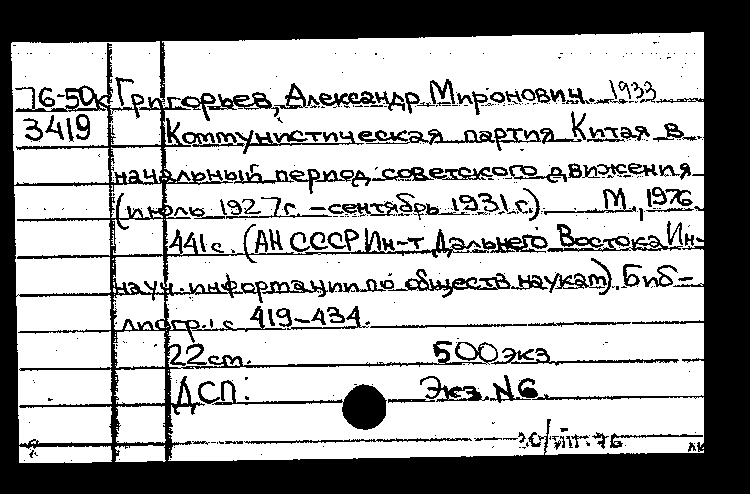 76-50к Григорьев, Александр Миронович. 1933
3419 Коммунистическая партия Китая в
начальный период советского движения
(июль 1927г. - сентябрь 1931г.). М., 1976.
441с. (АН СССР Ин-т Дальнего Востока Ин-
науч. информации по обществ наукам). Биб-
лиогр.: с. 419-434.
22см. 500экз
ДСП. Экз. N6.
20/VIII-76